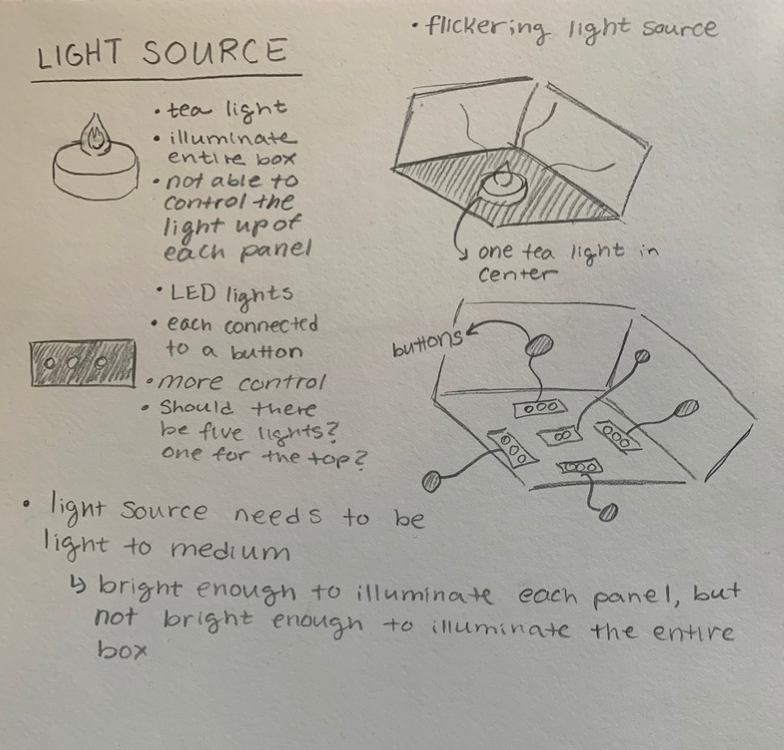 LIGHT SOURCE
• flickering light source
• tea light
• illuminate
entire box
• not able to
control the
light up of
each panel
one tea light in
center
• LED lights
• each connected
to a button
• more control
• Should there
be five lights?
one for the top?
buttons
• light source needs to be
light to medium
↳ bright enough to illuminate each panel, but
not bright enough to illuminate the entire
box